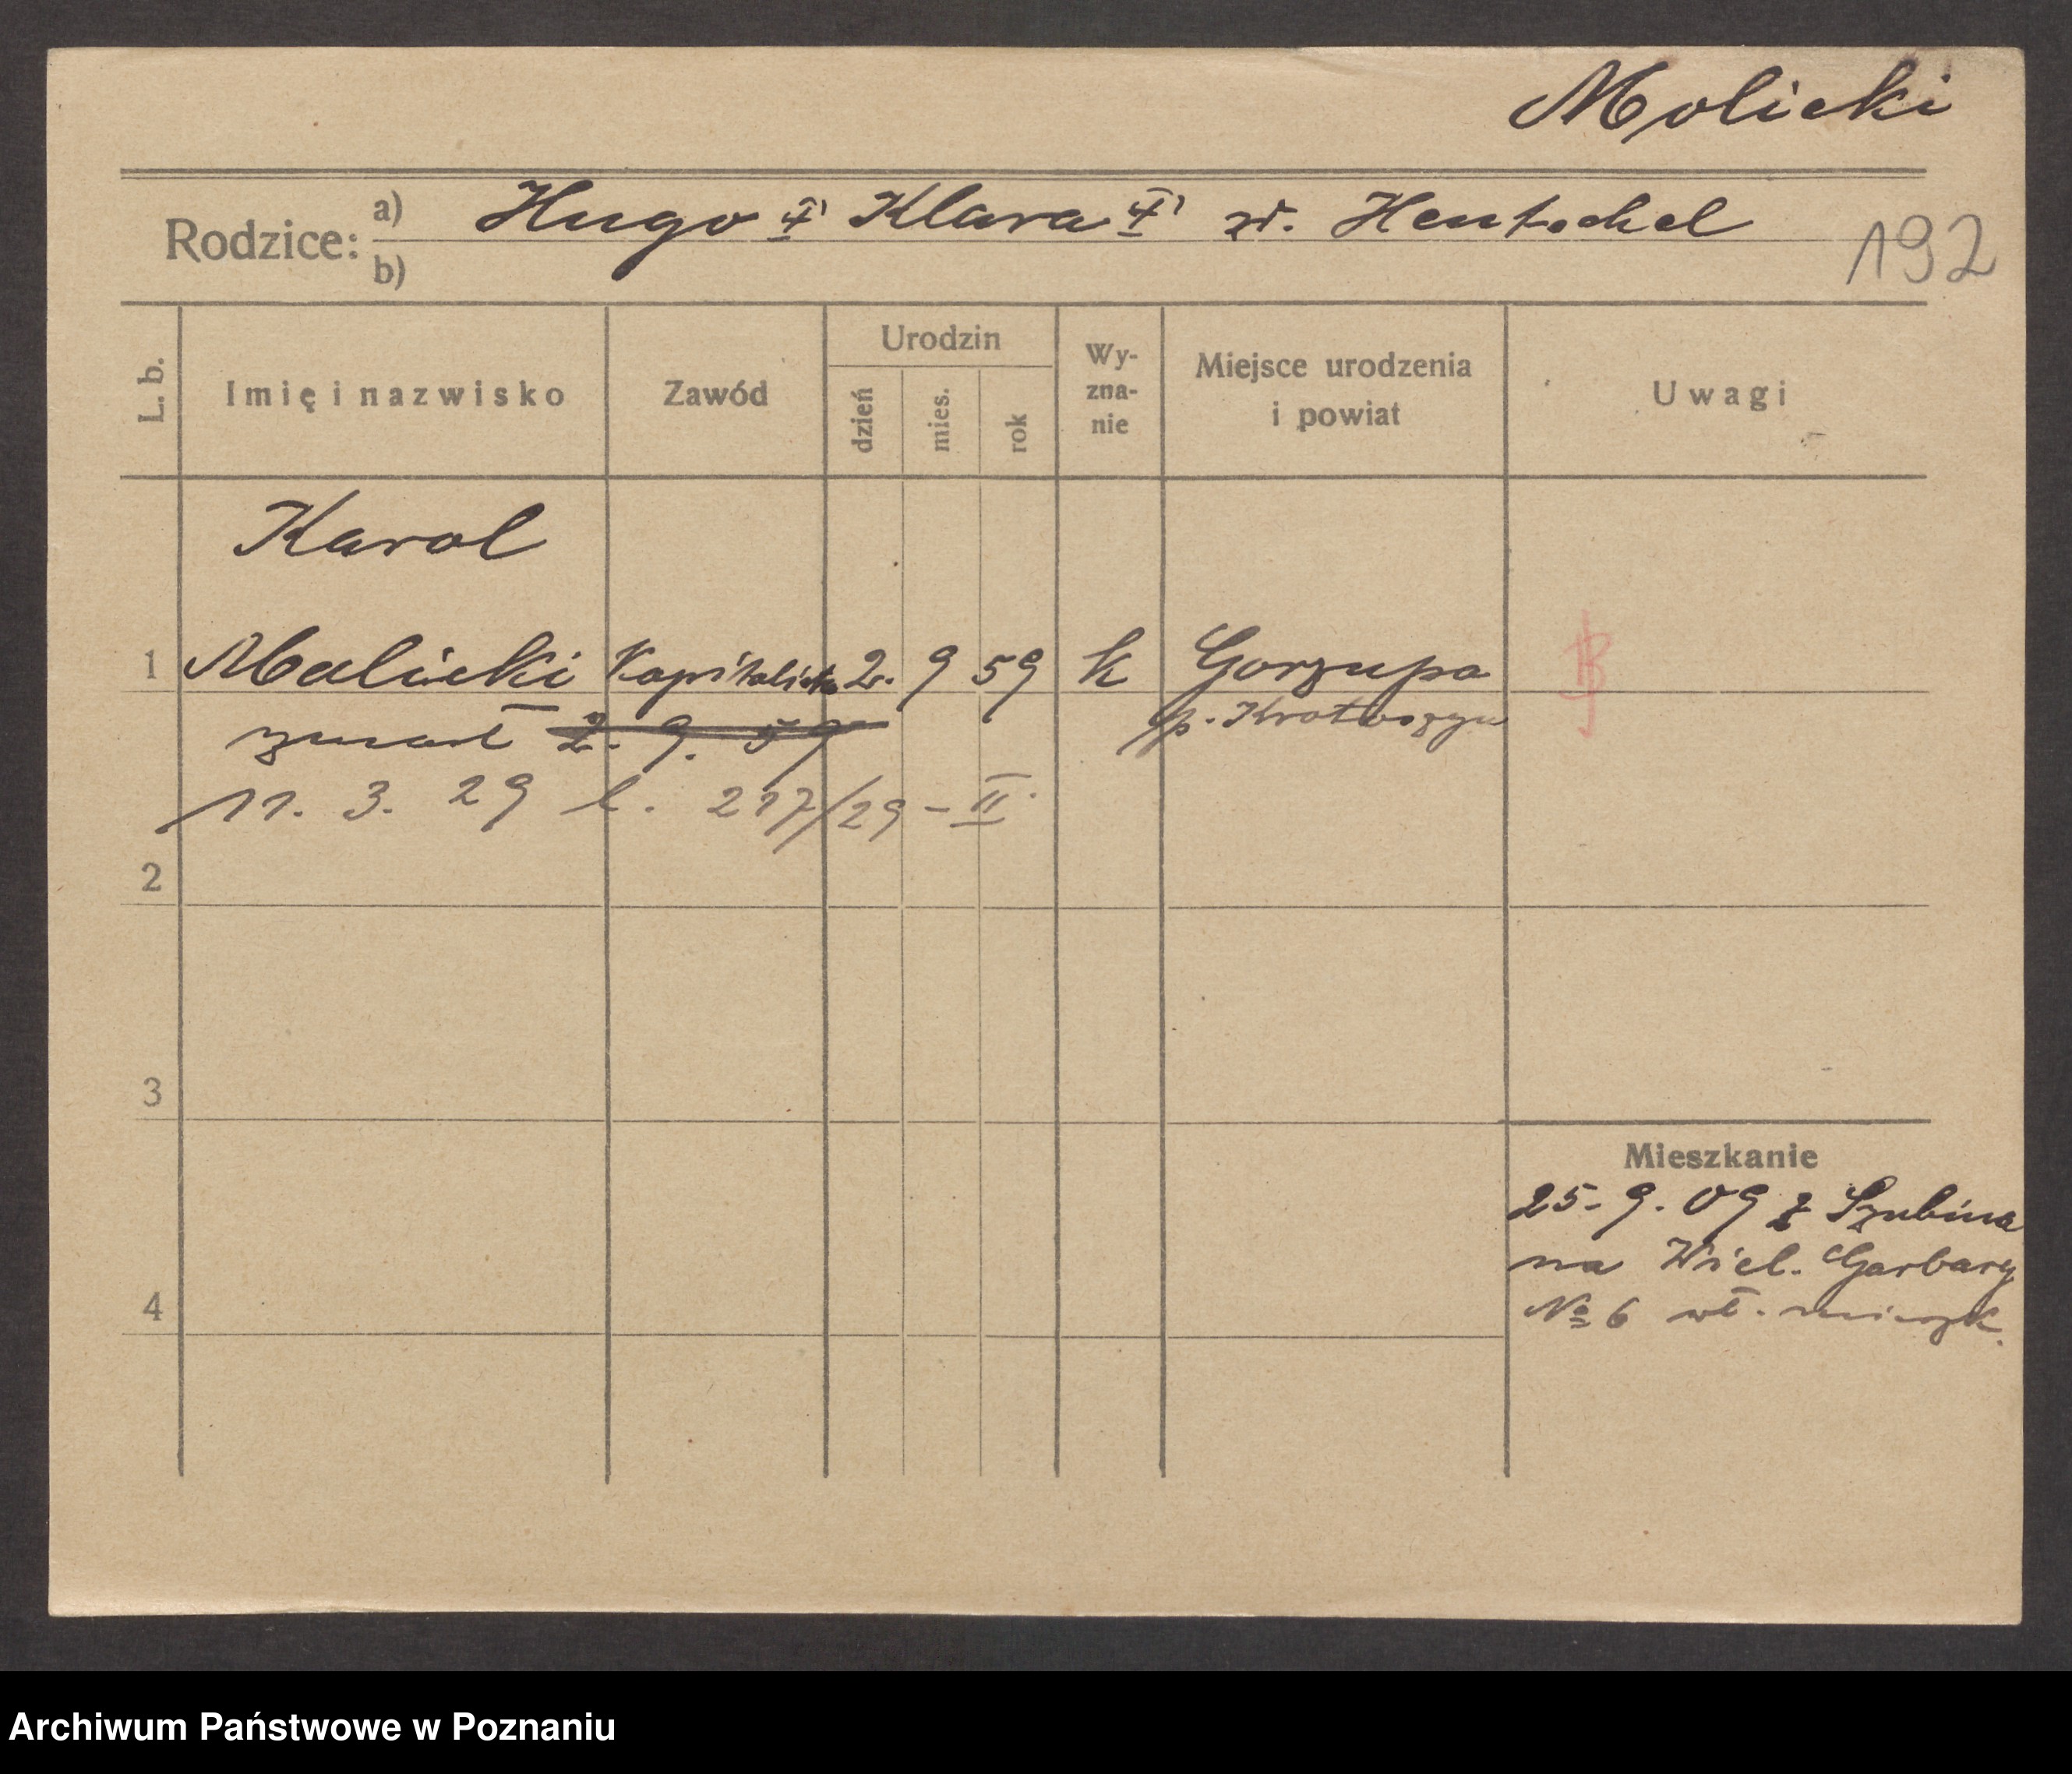 Molicki
Rodzice: a) Hugo † Klara † zd. Hentschel
b)
192
L. b. Imię i nazwisko Zawód Urodzin dzień mies. rok Wy-zna-nie Miejsce urodzenia i powiat Uwagi
Karol
1 Malicki Kapitalista 2. 9 59 k Gorzupa
p. Krotoszyn
zmarł 2. 9. 59
11. 3. 29 l. 217/29 - II.
2
3
Mieszkanie
25. 9. 09 z Szubina
na Wiel. Garbary
4
№ 6 wł. mieszk.
Archiwum Państwowe w Poznaniu